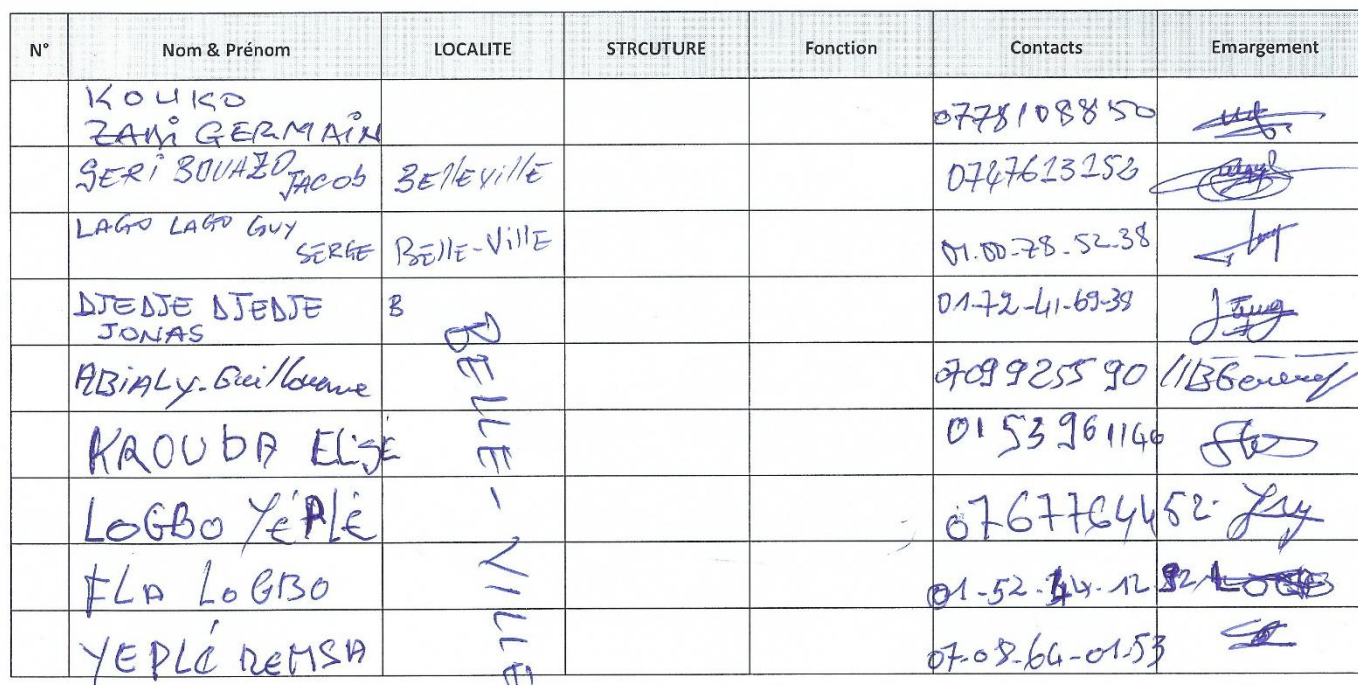 N° Nom & Prénom LOCALITE STRCUTURE Fonction Contacts Emargement
KOUKO
ZABI GERMAIN 0778108850
SERI BOUAZO JACOB BEllEVillE 0747613152
LAGO LAGO GUY
SERGE BEllE-VillE 01.00-78-52-38
DJEDJE DJEDJE B 01-72-41-69-39
JONAS
ABIALY-Guillaume 0709925590
KAOUDA ELISÉ 0153961146
LOGBO YÉPLÉ 0767764452
ELA LOGBO 01-52-44-12-92
YEPLÉ REMSA 07-08-64-01-53
BELLE-VILLE